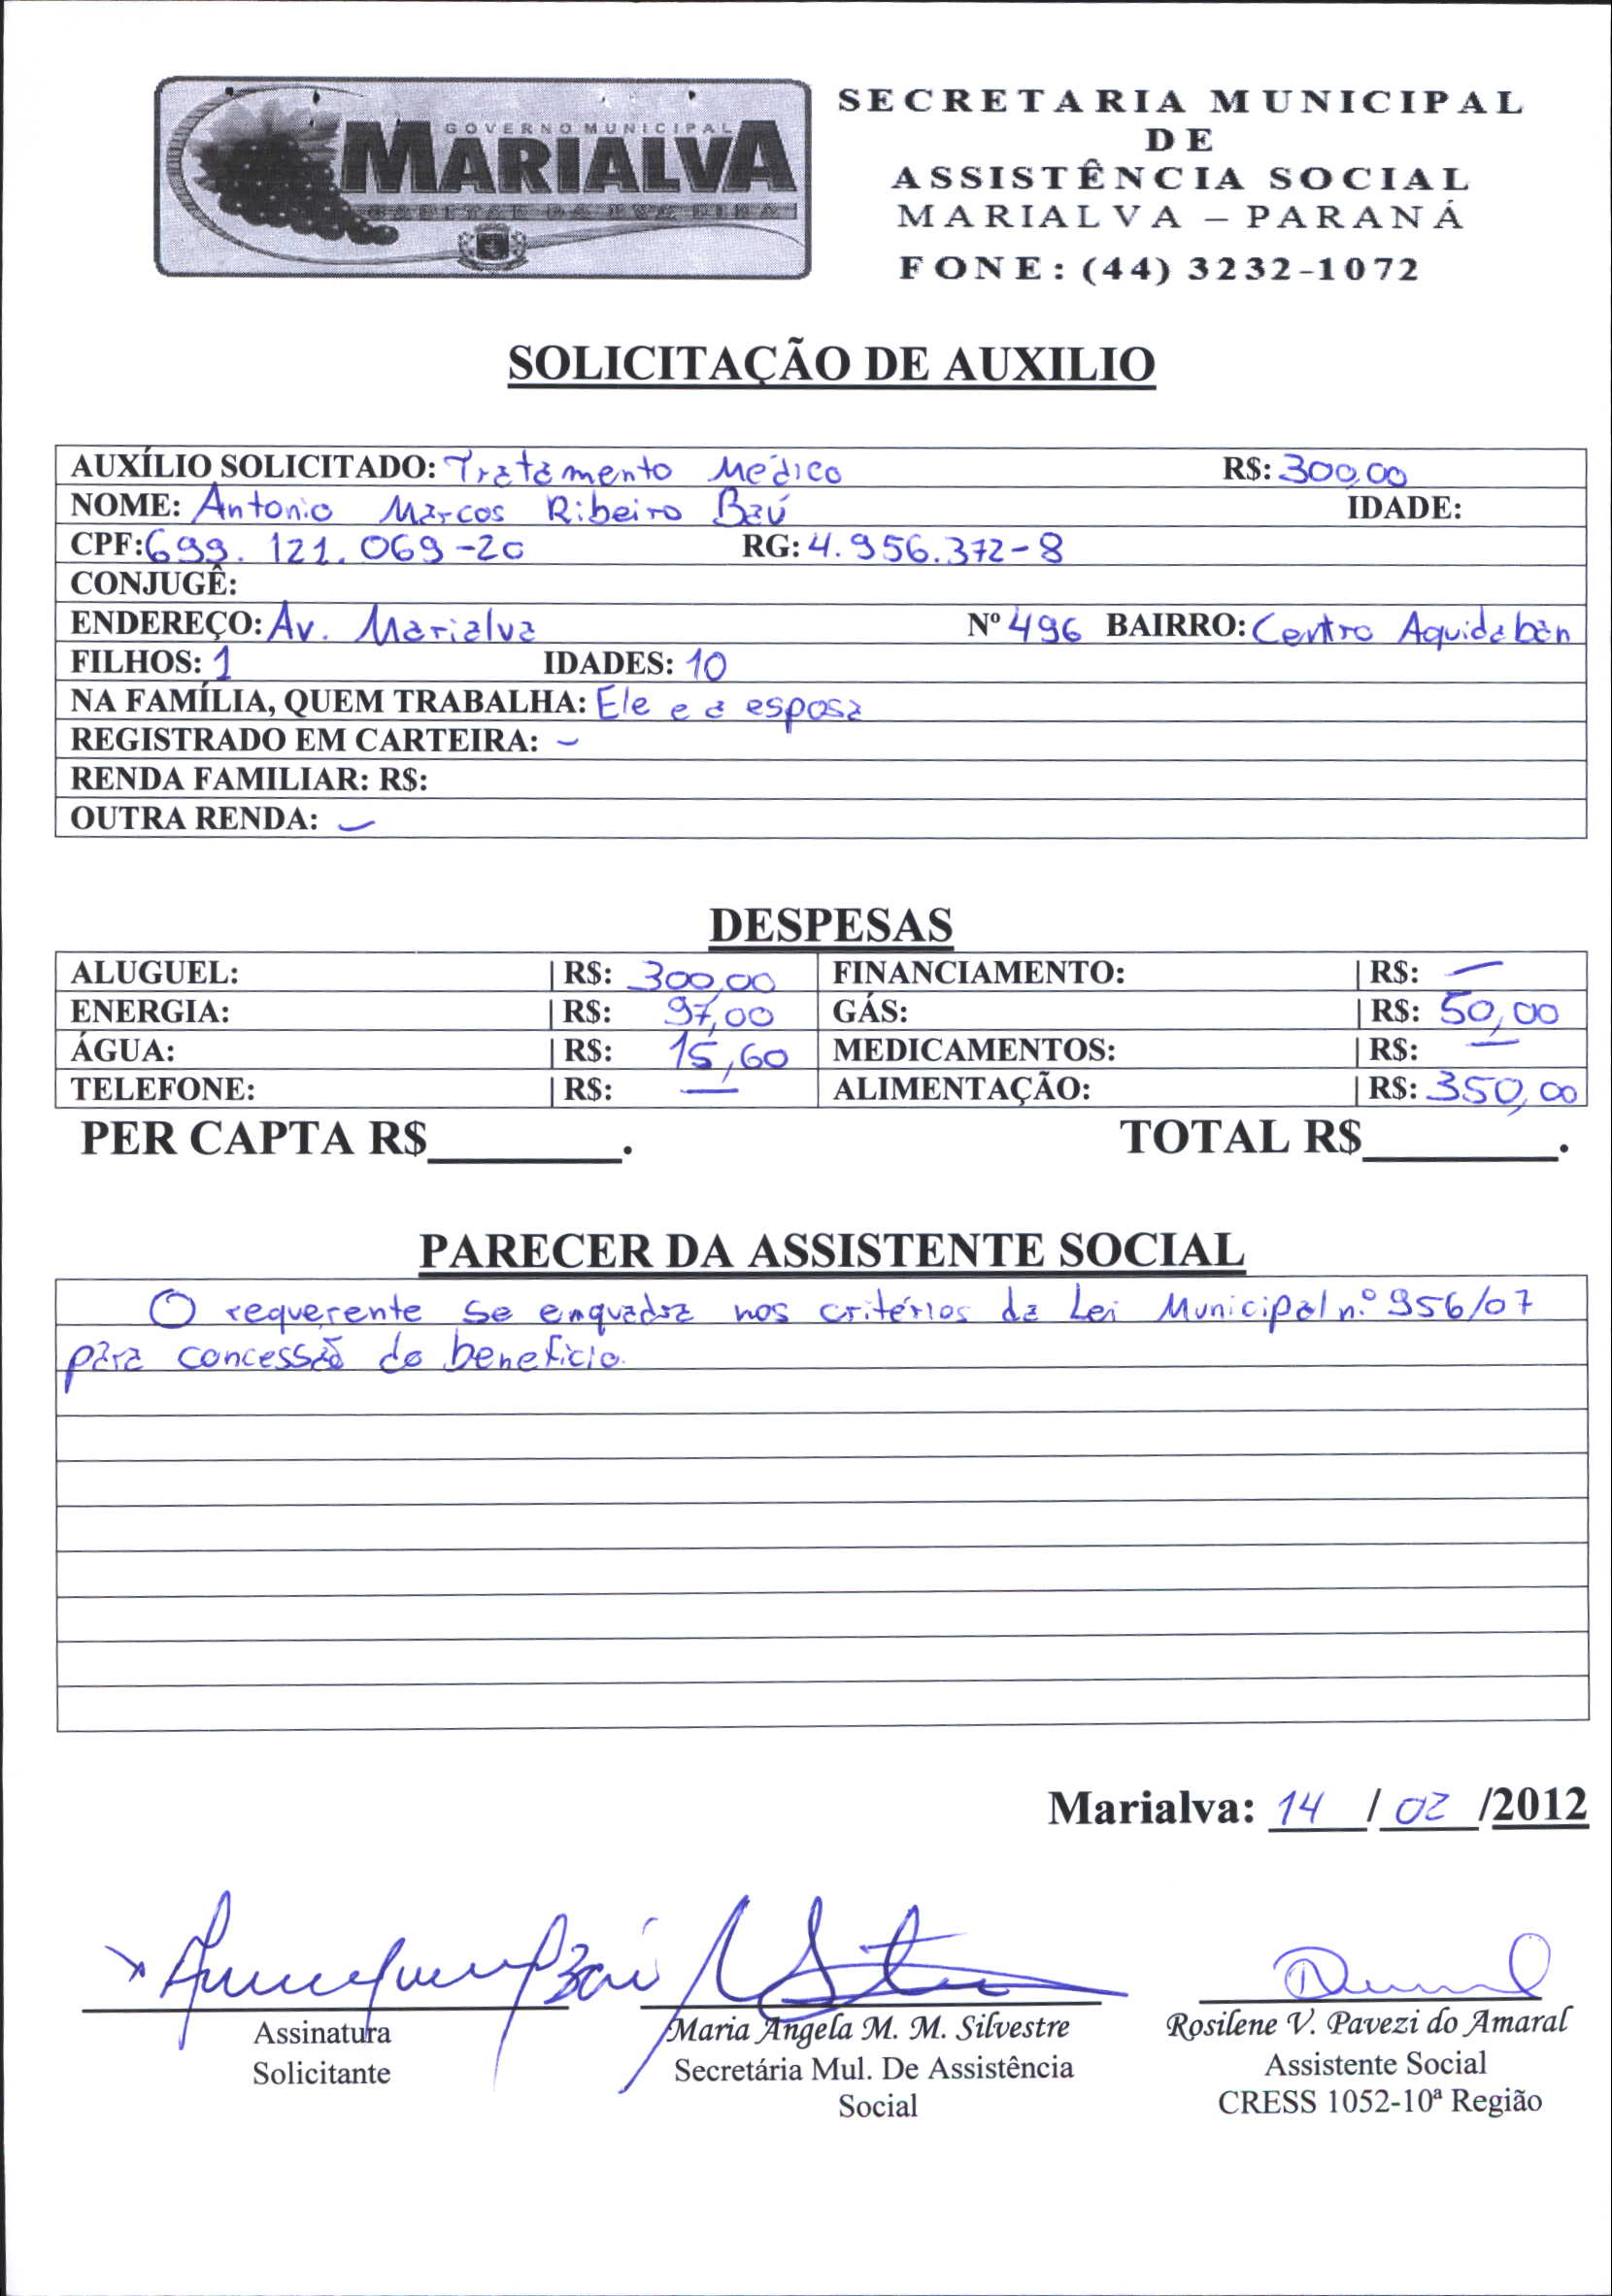 GOVERNO MUNICIPAL
MARIALVA
CAPITAL DA UVA FINA
SECRETARIA MUNICIPAL
DE
ASSISTÊNCIA SOCIAL
MARIALVA – PARANÁ
FONE: (44) 3232-1072
SOLICITAÇÃO DE AUXILIO
AUXÍLIO SOLICITADO: Tratamento Médico R$: 300,00
NOME: Antonio Marcos Ribeiro Baú IDADE:
CPF: 699.121.069-20 RG: 4.956.372-8
CONJUGÊ:
ENDEREÇO: Av. Marialva Nº 496 BAIRRO: Centro Aquidaban
FILHOS: 1 IDADES: 10
NA FAMÍLIA, QUEM TRABALHA: Ele e a esposa
REGISTRADO EM CARTEIRA: –
RENDA FAMILIAR: R$:
OUTRA RENDA: –
DESPESAS
ALUGUEL: | R$: 300,00 FINANCIAMENTO: | R$: —
ENERGIA: | R$: 97,00 GÁS: | R$: 50,00
ÁGUA: | R$: 15,60 MEDICAMENTOS: | R$: —
TELEFONE: | R$: — ALIMENTAÇÃO: | R$: 350,00
PER CAPTA R$________. TOTAL R$________.
PARECER DA ASSISTENTE SOCIAL
O requerente se enquadra nos critérios da Lei Municipal n.º 956/07
para concessão do benefício.
Marialva: 14 / 02 /2012
Assinatura
Solicitante
Maria Ângela M. M. Silvestre
Secretária Mul. De Assistência
Social
Rosilene V. Pavezi do Amaral
Assistente Social
CRESS 1052-10ª Região